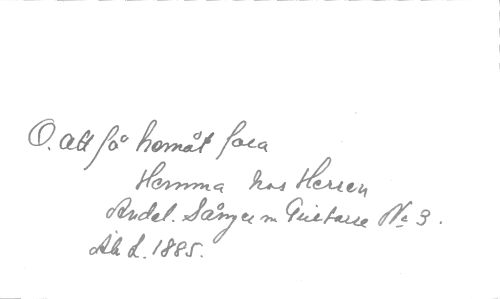 O. att få hemåt fara
Hemma hos Herren
Andel. Sånger m Guitarre No 3.
Åh L. 1885.